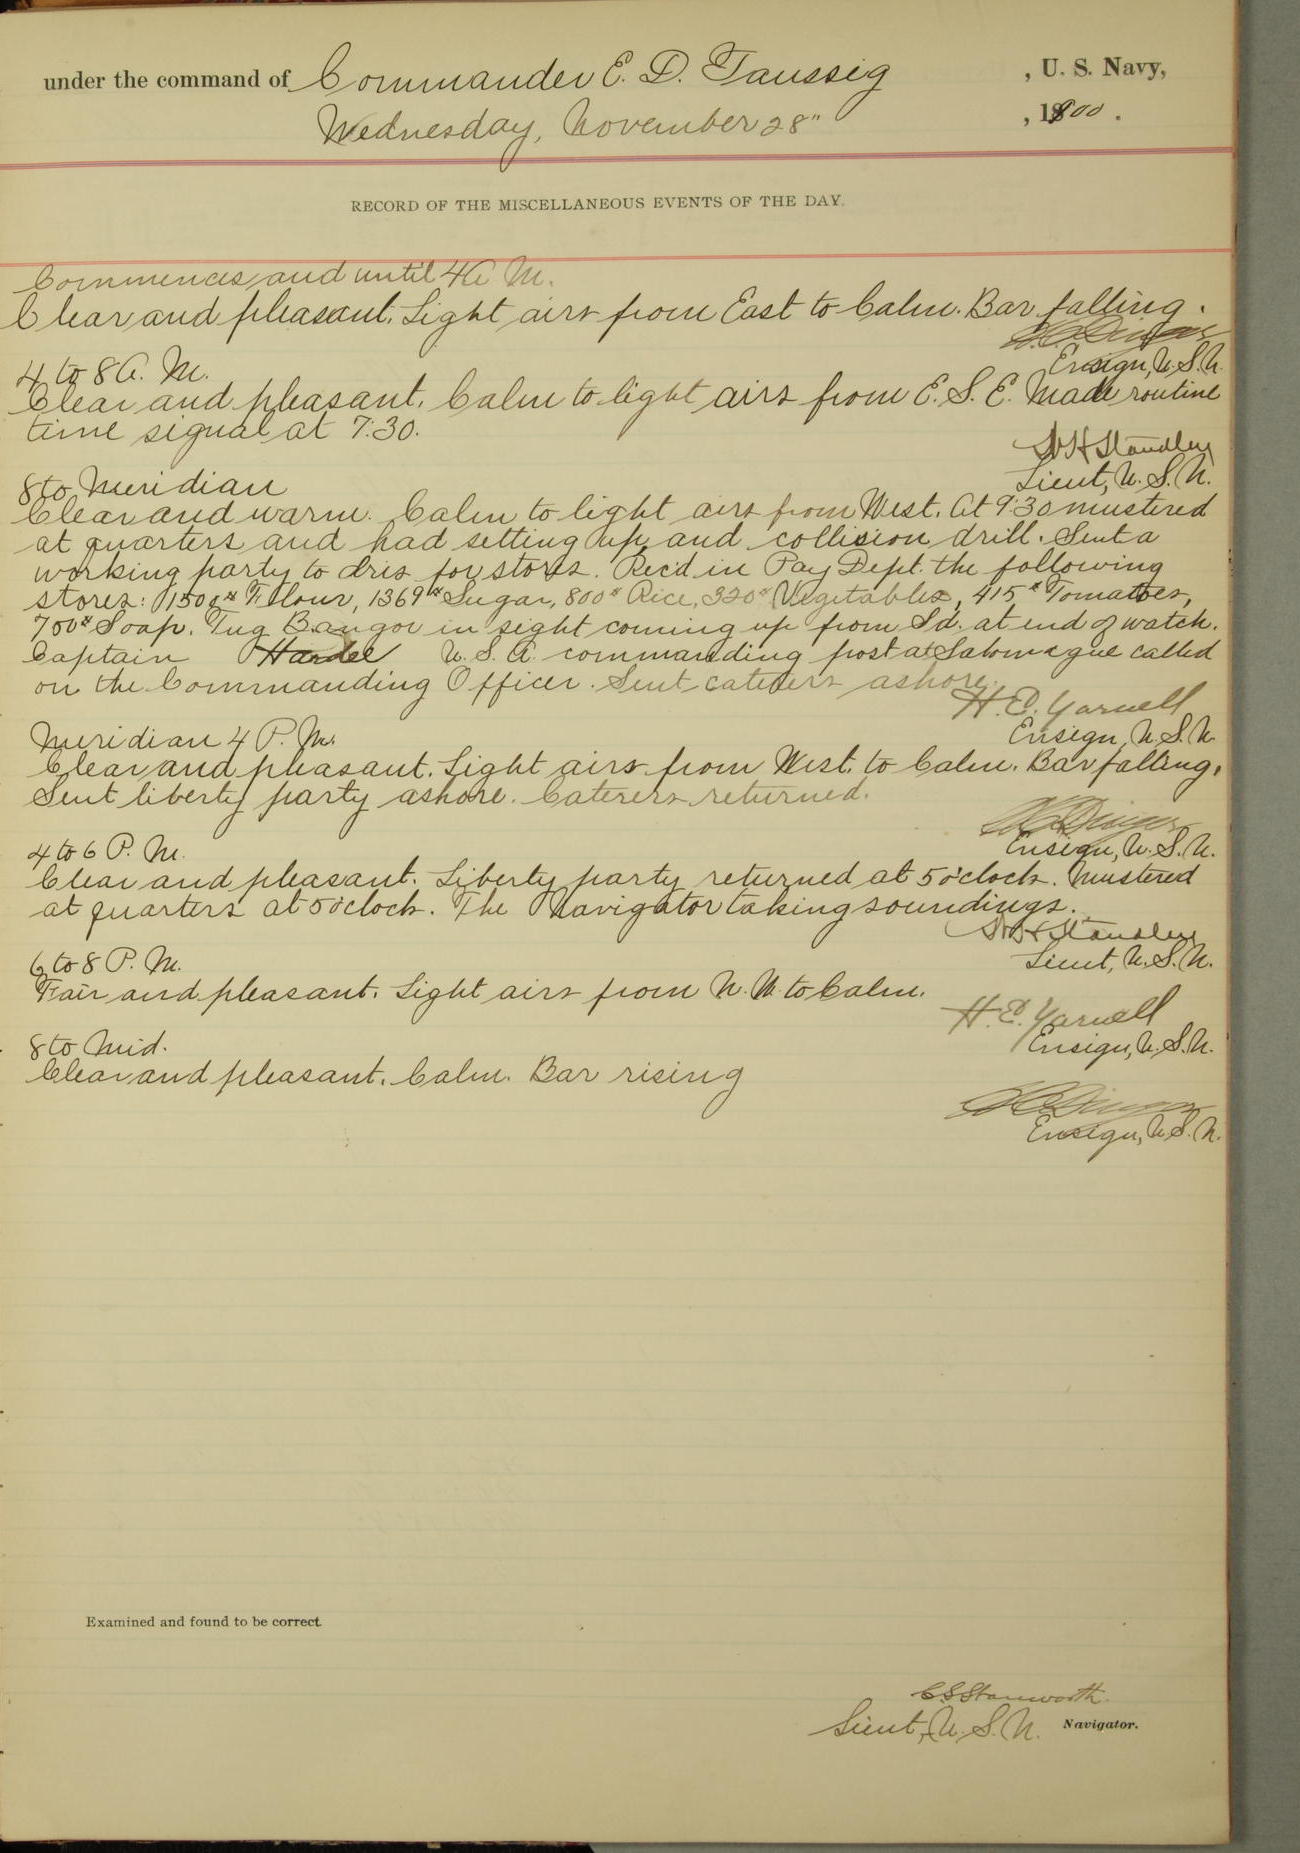 under the command of Commander E. D. Taussig, U. S. Navy,
Wednesday, November 28", 1900.
RECORD OF THE MISCELLANEOUS EVENTS OF THE DAY.
Commences and until 4 A. M.
Clear and pleasant. Light airs from East to Calm. Bar falling.
Ensign, U.S.N.
4 to 8 A. M.
Clear and pleasant. Calm to light airs from E. S. E. Made routine
time signal at 7:30.
W H Standley
Lieut, U. S. N.
8 to Meridian
Clear and warm. Calm to light airs from West. At 9:30 mustered
at quarters and had setting up, and collision drill. Sent a
working party to for stores. Rec'd in Pay Dept. the following
stores: 1500# Flour, 1369# Sugar, 800# Rice, 320# Vegetables, 415# Tomatoes,
700# Soap. Tug Bangor in sight coming up from S'd. at end of watch.
Captain U. S. A. commanding post at Salomague called
on the Commanding Officer. Sent caterers ashore.
H. E. Yarnell
Ensign, U.S.N.
Meridian 4 P. M.
Clear and pleasant. Light airs from West. to Calm. Bar falling.
Sent liberty party ashore. Caterers returned.
Ensign, U. S. N.
4 to 6 P. M.
Clear and pleasant. Liberty party returned at 5 o'clock. Mustered
at quarters at 5 o'clock. The Navigator taking soundings.
W H Standley
Lieut, U. S. N.
6 to 8 P. M.
Fair and pleasant. Light airs from N. W. to Calm.
H. E. Yarnell
Ensign, U. S. N.
8 to Mid.
Clear and pleasant. Calm. Bar rising
Ensign, U. S. N.
Examined and found to be correct.
C S Stanworth
Lieut, U. S. N. Navigator.